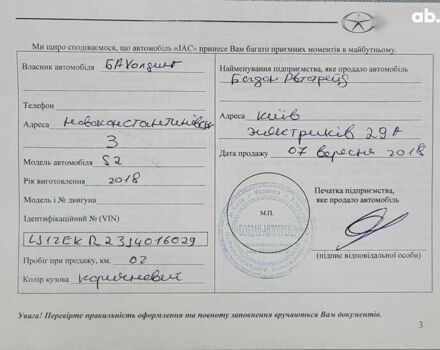 ab.
Ми щиро сподіваємося, що автомобіль «JAC» принесе Вам багато приємних моментів в майбутньому.
Власник автомобіля БАХолдинг
Телефон
Адреса Новоконстантинівськ
3
Модель автомобіля S2
Рік виготовлення 2018
Модель і № двигуна
Ідентифікаційний № (VIN)
LJ12EKR23J4016029
Пробіг при продажу, км. 02
Колір кузова коричневый
Найменування підприємства, яке продало автомобіль
Богдан Автотрейд
Адреса Київ
Электриків 29А
Дата продажу 07 вересня 2018
М.П.
БОГДАН-АВТОТРЕЙД
Печатка підприємства,
яке продало автомобіль
(підпис відповідальної особи)
Увага! Перевірте правильність оформлення та повноту заповнення вручаються Вам документів.
3